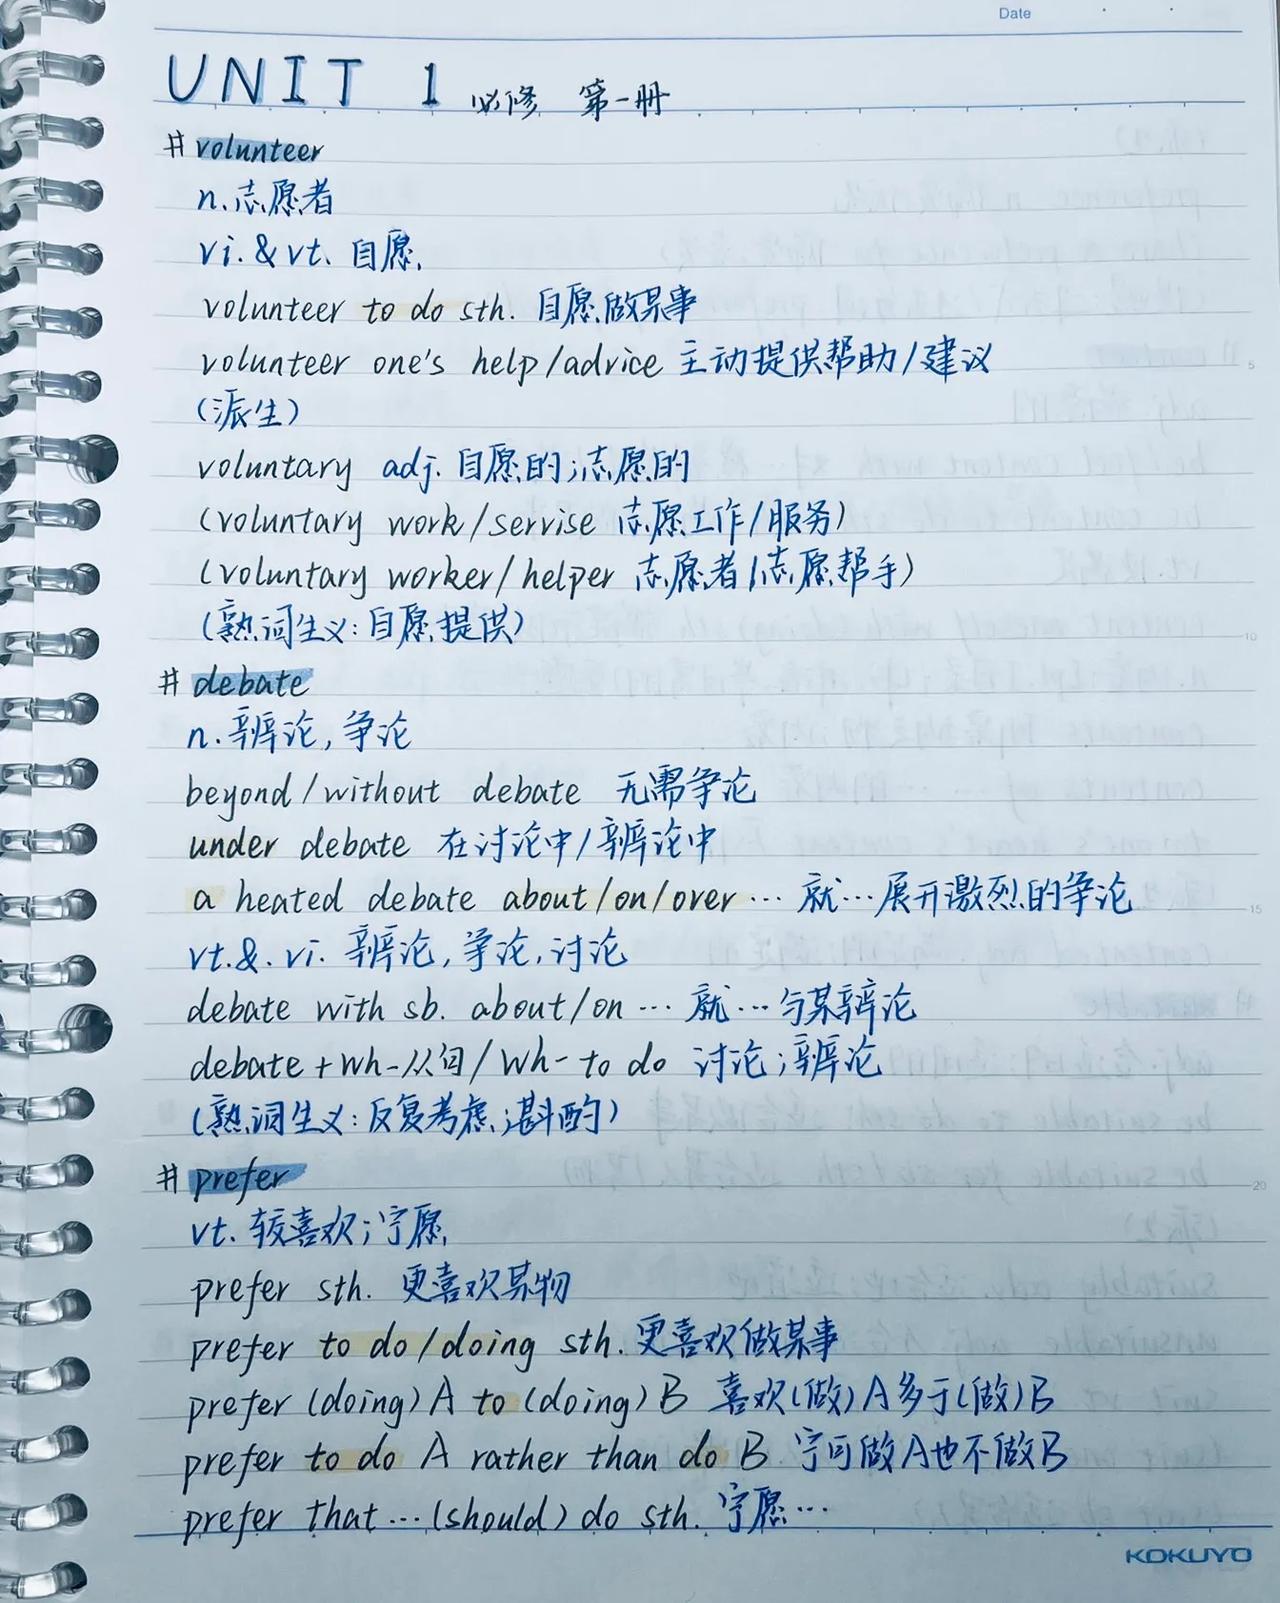 Date
UNIT 1 必修 第一册
# volunteer
n. 志愿者
vi. & vt. 自愿
volunteer to do sth. 自愿做某事
volunteer one's help/advice 主动提供帮助/建议
(派生)
voluntary adj. 自愿的;志愿的
(voluntary work/servise 志愿工作/服务)
(voluntary worker/helper 志愿者/志愿帮手)
(熟词生义:自愿提供)
# debate
n. 辩论,争论
beyond/without debate 无需争论
under debate 在讨论中/辩论中
a heated debate about/on/over… 就…展开激烈的争论
vt. & vi. 辩论,争论,讨论
debate with sb. about/on … 就…与某辩论
debate + wh-从句/wh- to do 讨论;辩论
(熟词生义:反复考虑;斟酌)
# prefer
vt. 较喜欢;宁愿
prefer sth. 更喜欢某物
prefer to do/doing sth. 更喜欢做某事
prefer (doing) A to (doing) B 喜欢(做)A多于(做)B
prefer to do A rather than do B 宁可做A也不做B
prefer that … (should) do sth. 宁愿…
KOKUYO